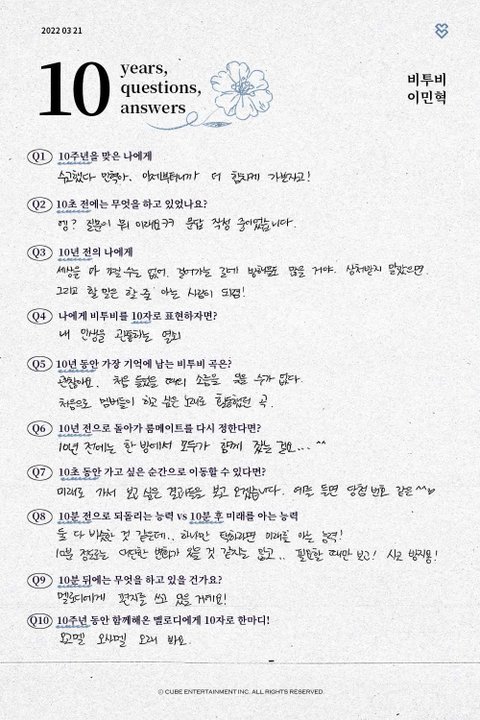 2022 03 21
10 years,
questions,
answers
비투비
이민혁
Q1 10주년을 맞은 나에게
수고했다 민혁아. 이제부터니까 더 힘차게 가보자고!
Q2 10초 전에는 무엇을 하고 있었나요?
엥? 질문이 뭐 이래요ㅋㅋ 문답 작성 중이었습니다.
Q3 10년 전의 나에게
세상을 다 가질 수는 없어. 걸어가는 길에 방해물도 많을 거야. 상처받지 말았으면.
그리고 할 말은 할 줄 아는 사람이 되렴!
Q4 나에게 비투비를 10자로 표현하자면?
내 인생을 관통하는 열쇠
Q5 10년 동안 가장 기억에 남는 비투비 곡은?
괜찮아요. 처음 들었을 때의 소름을 잊을 수가 없다.
처음으로 멤버들이 하고 싶은 노래로 활동했던 곡.
Q6 10년 전으로 돌아가 룸메이트를 다시 정한다면?
10년 전에는 한 방에서 모두가 함께 잤는걸요... ^^
Q7 10초 동안 가고 싶은 순간으로 이동할 수 있다면?
미래로 가서 보고 싶은 결과들을 보고 오겠습니다. 예를 들면 당첨 번호 같은^^
Q8 10분 전으로 되돌리는 능력 vs 10분 후 미래를 아는 능력
둘 다 비슷한 것 같은데.. 하나만 택하라면 미래를 아는 능력!
10분 정도는 대단한 변화가 있을 것 같지는 않고.. 필요할 때만 보고! 사고 방지용!
Q9 10분 뒤에는 무엇을 하고 있을 건가요?
멜로디에게 편지를 쓰고 있을 거예요!
Q10 10주년 동안 함께해온 멜로디에게 10자로 한마디!
요고멜 오사멜 오래 봐요.
© CUBE ENTERTAINMENT INC. ALL RIGHTS RESERVED.